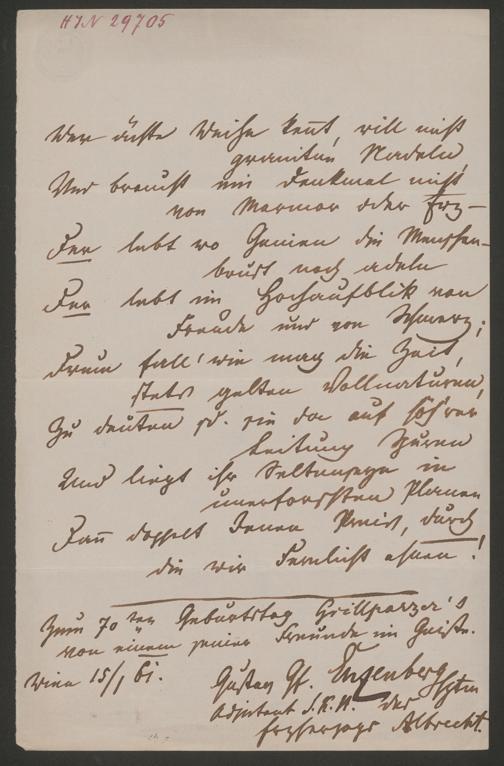 HIN 29705
Wer ächte Weihe kennt, will nicht
graniten Nadeln,
Und braucht ein Denkmal nicht
von Marmor oder Erz –
Der lebt wo Genien die Menschen-
brust noch adeln
Der lebt im Hochaufblik von
Freude und von Schmerz;
Drum fall' wie mag die Zeit,
stets gelten Vollnaturen,
Zu deuten sie da auf höh'rer
Leitung Spuren
Und liegt ihr in
unerforschten Planen
Dann doppelt Jenen Preis, durch
die wir Fernlicht ahnen!
Zum 70ten Geburtstag Grillparzer's
von einem seiner Freunde im Geiste.
Wien 15/1 61.
Gustav Gf. Enzenberg Hptm
Adjutant S.K.H. des
Erzherzogs Albrecht.